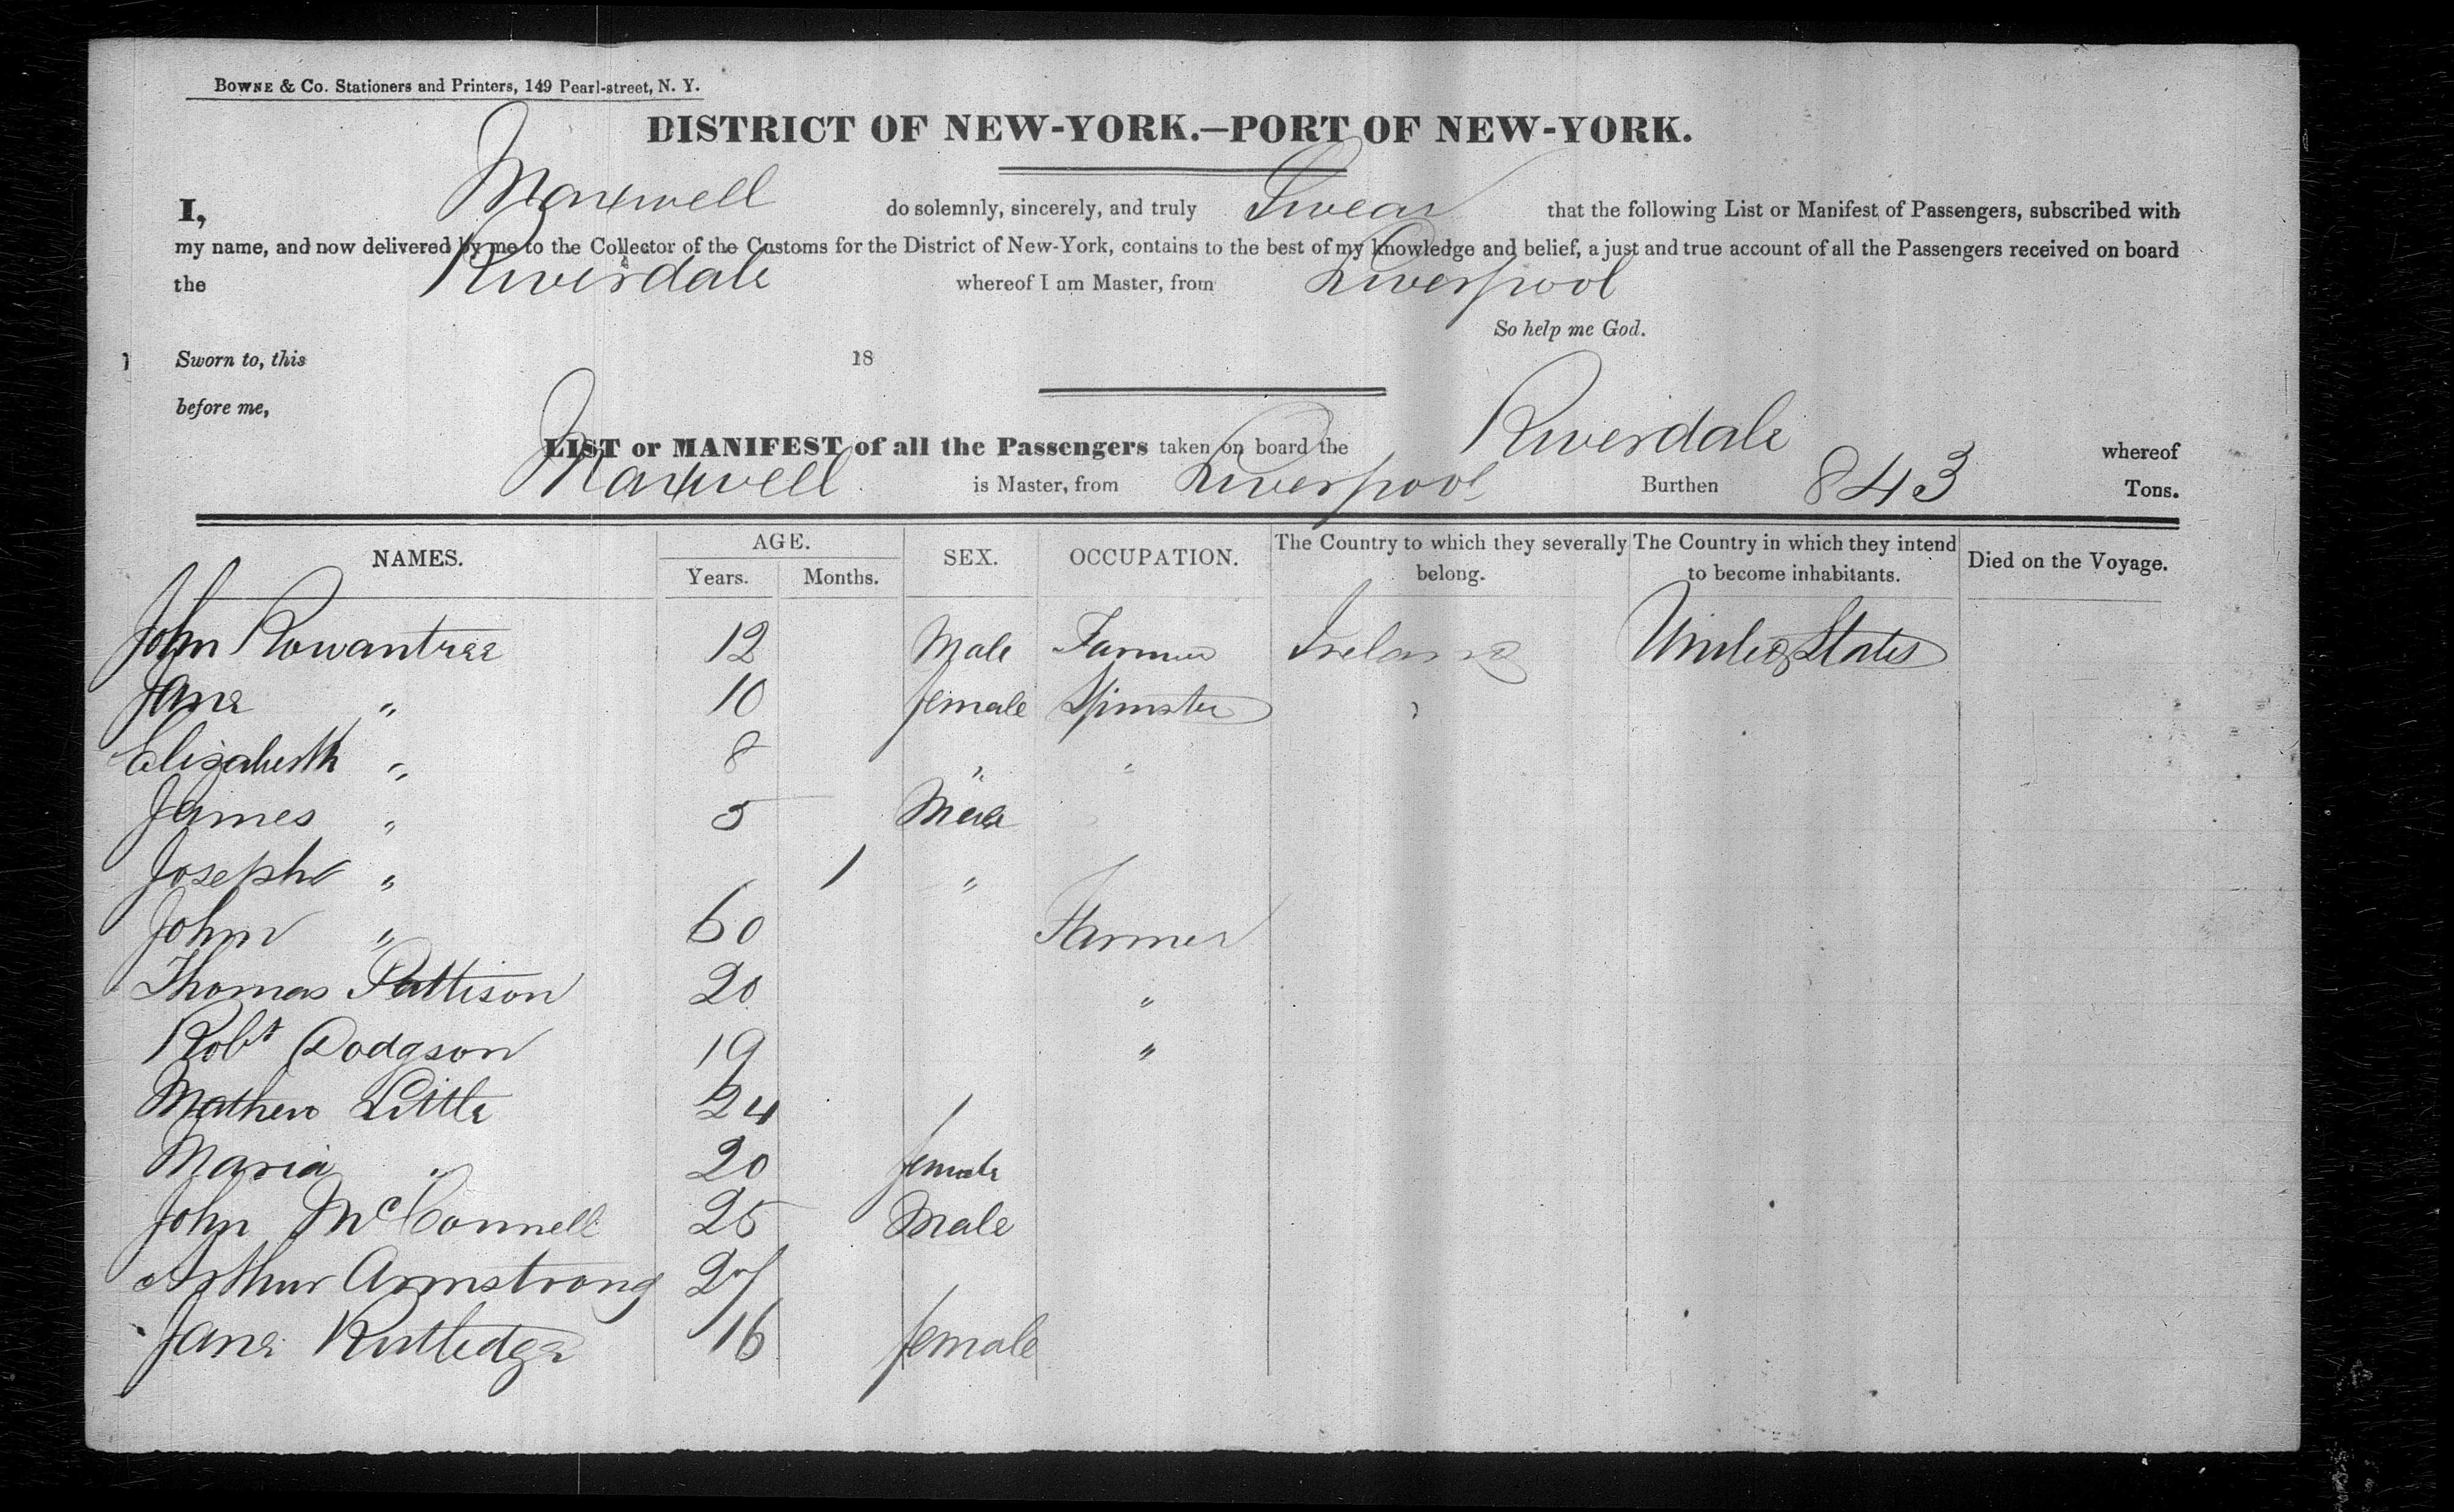 BOWNE & CO. Stationers and Printers, 149 Pearl-street, N. Y.
DISTRICT OF NEW-YORK.—PORT OF NEW-YORK.
I, Maxwell do solemnly, sincerely, and truly Swear that the following List or Manifest of Passengers, subscribed with
my name, and now delivered by me to the Collector of the Customs for the District of New-York, contains to the best of my knowledge and belief, a just and true account of all the Passengers received on board
the Riverdale whereof I am Master, from Liverpool
So help me God.
Sworn to, this 18
before me,
LIST or MANIFEST of all the Passengers taken on board the Riverdale whereof
Maxwell is Master, from Liverpool Burthen 843 Tons.
NAMES. AGE. Years. Months. SEX. OCCUPATION. The Country to which they severally belong. The Country in which they intend to become inhabitants. Died on the Voyage.
John Rowantree 12 Male Farmer Ireland United States
Jane " 10 female Spinster "
Elisabeth " 8 " "
James " 5 Male
Joseph " 1 "
John " 60 Farmer
Thomas Pattison 20 "
Robt Dodgson 19 "
Mathew Little 24
Maria " 20 female
John McConnell 25 Male
Arthur Armstrong 27
Jane Rutledge 16 female